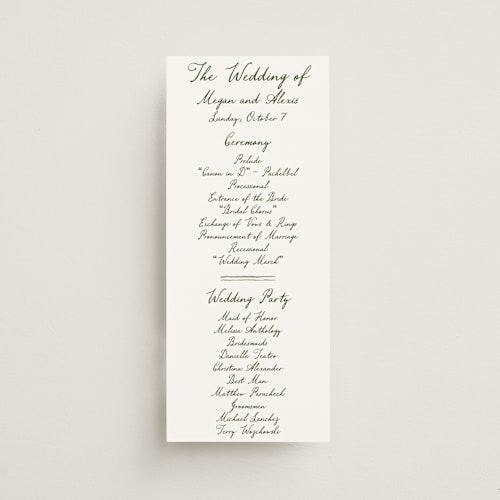 The Wedding of
Megan and Alexis
Sunday, October 7
Ceremony
Prelude
"Canon in D" – Pachelbel
Processional
Entrance of the Bride
"Bridal Chorus"
Exchange of Vows & Rings
Pronouncement of Marriage
Recessional
"Wedding March"
Wedding Party
Maid of Honor
Melissa Anthology
Bridesmaids
Danielle Teatro
Christina Alexander
Best Man
Matthew Paracheck
Groomsmen
Michael Sanchez
Terry Wojchowski